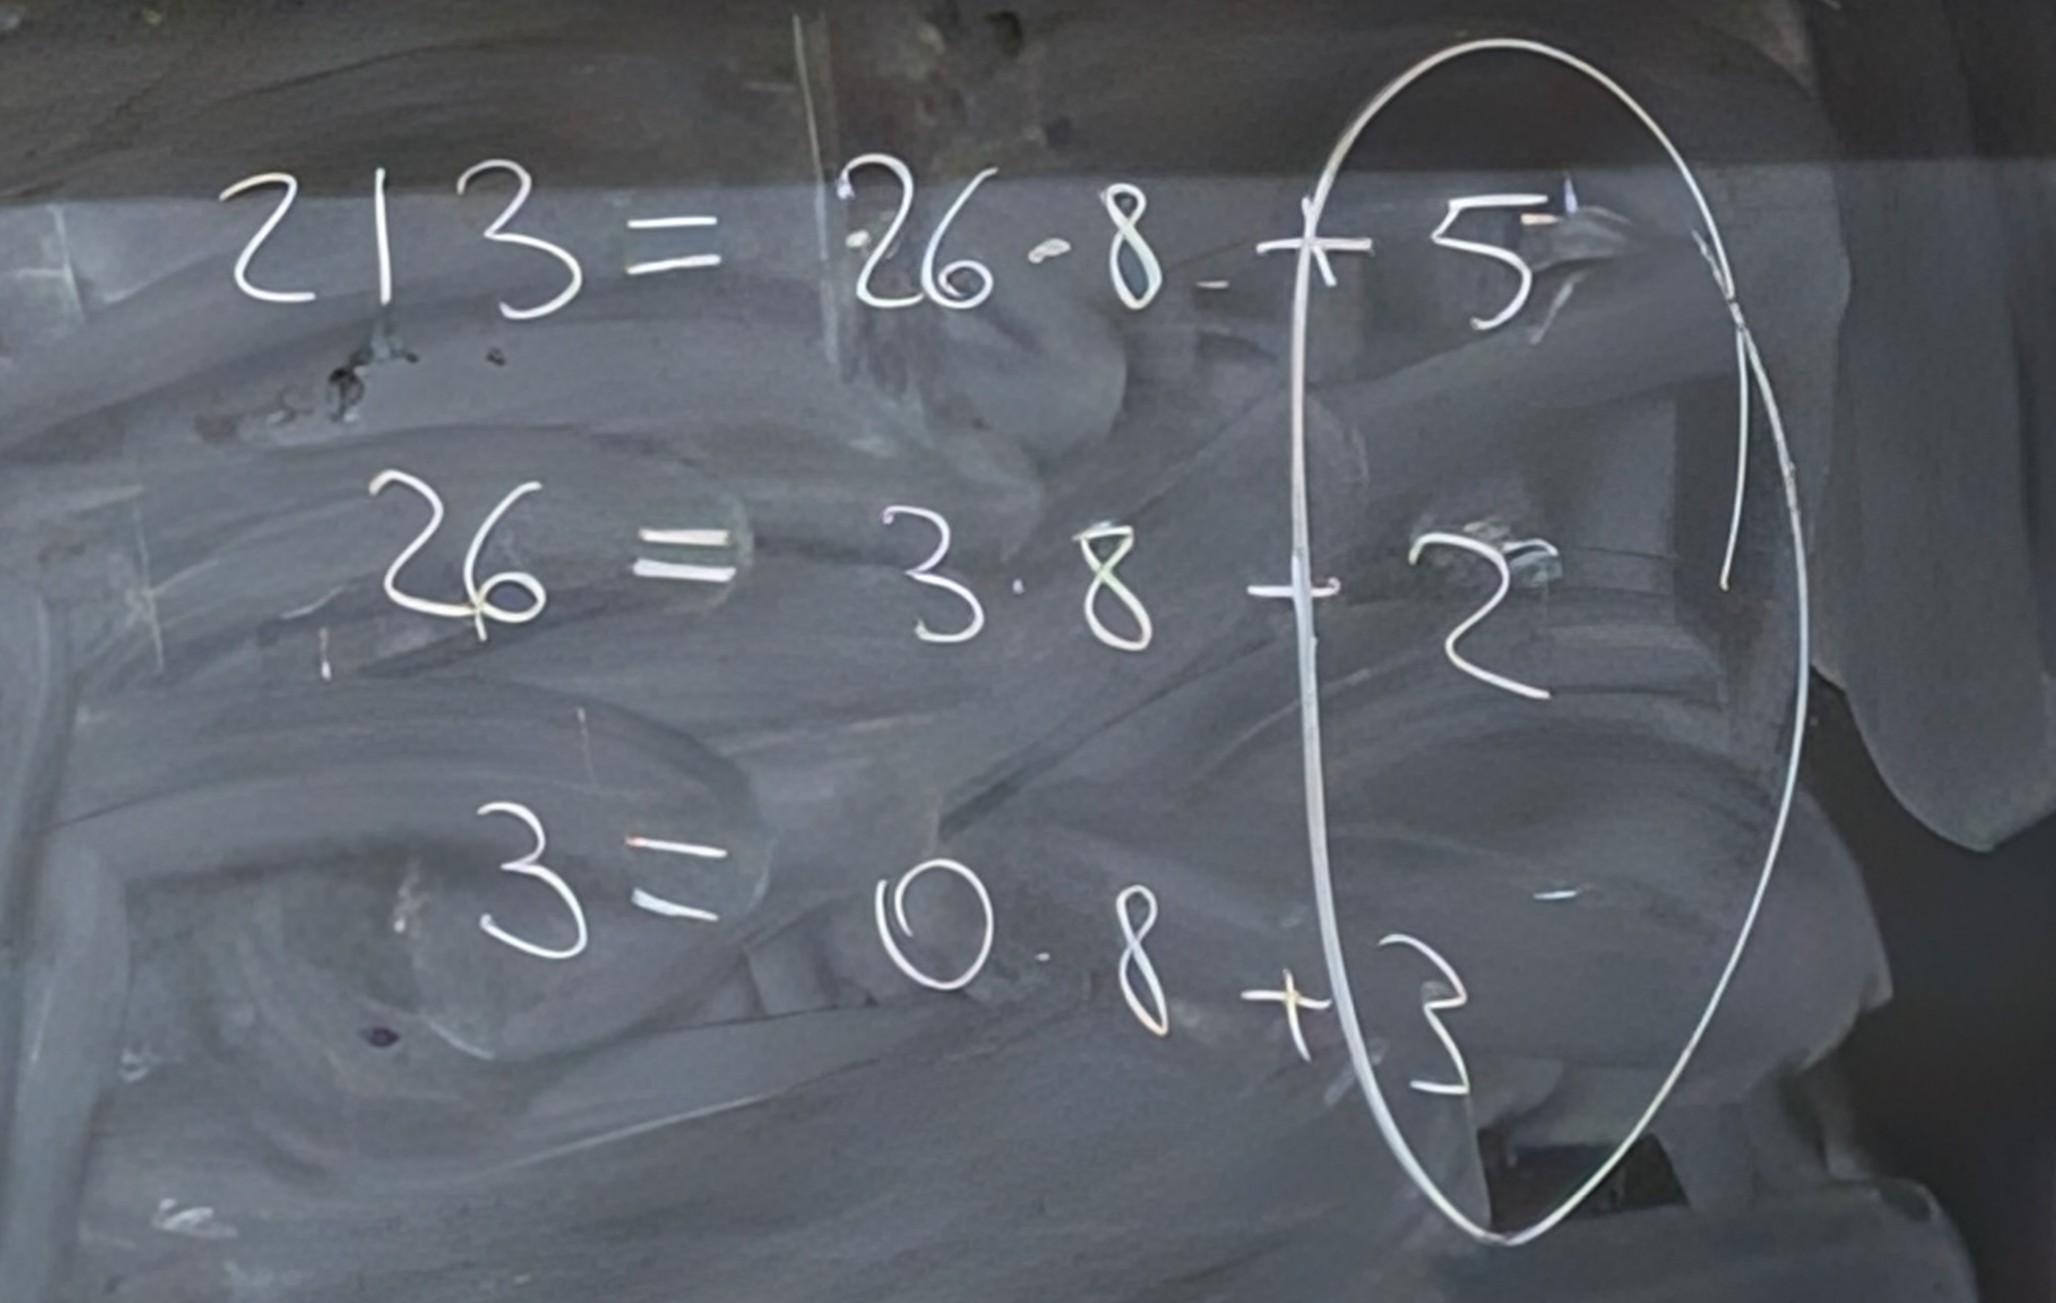 213 = 26 · 8 + 5
26 = 3 · 8 + 2
3 = 0 · 8 + 3